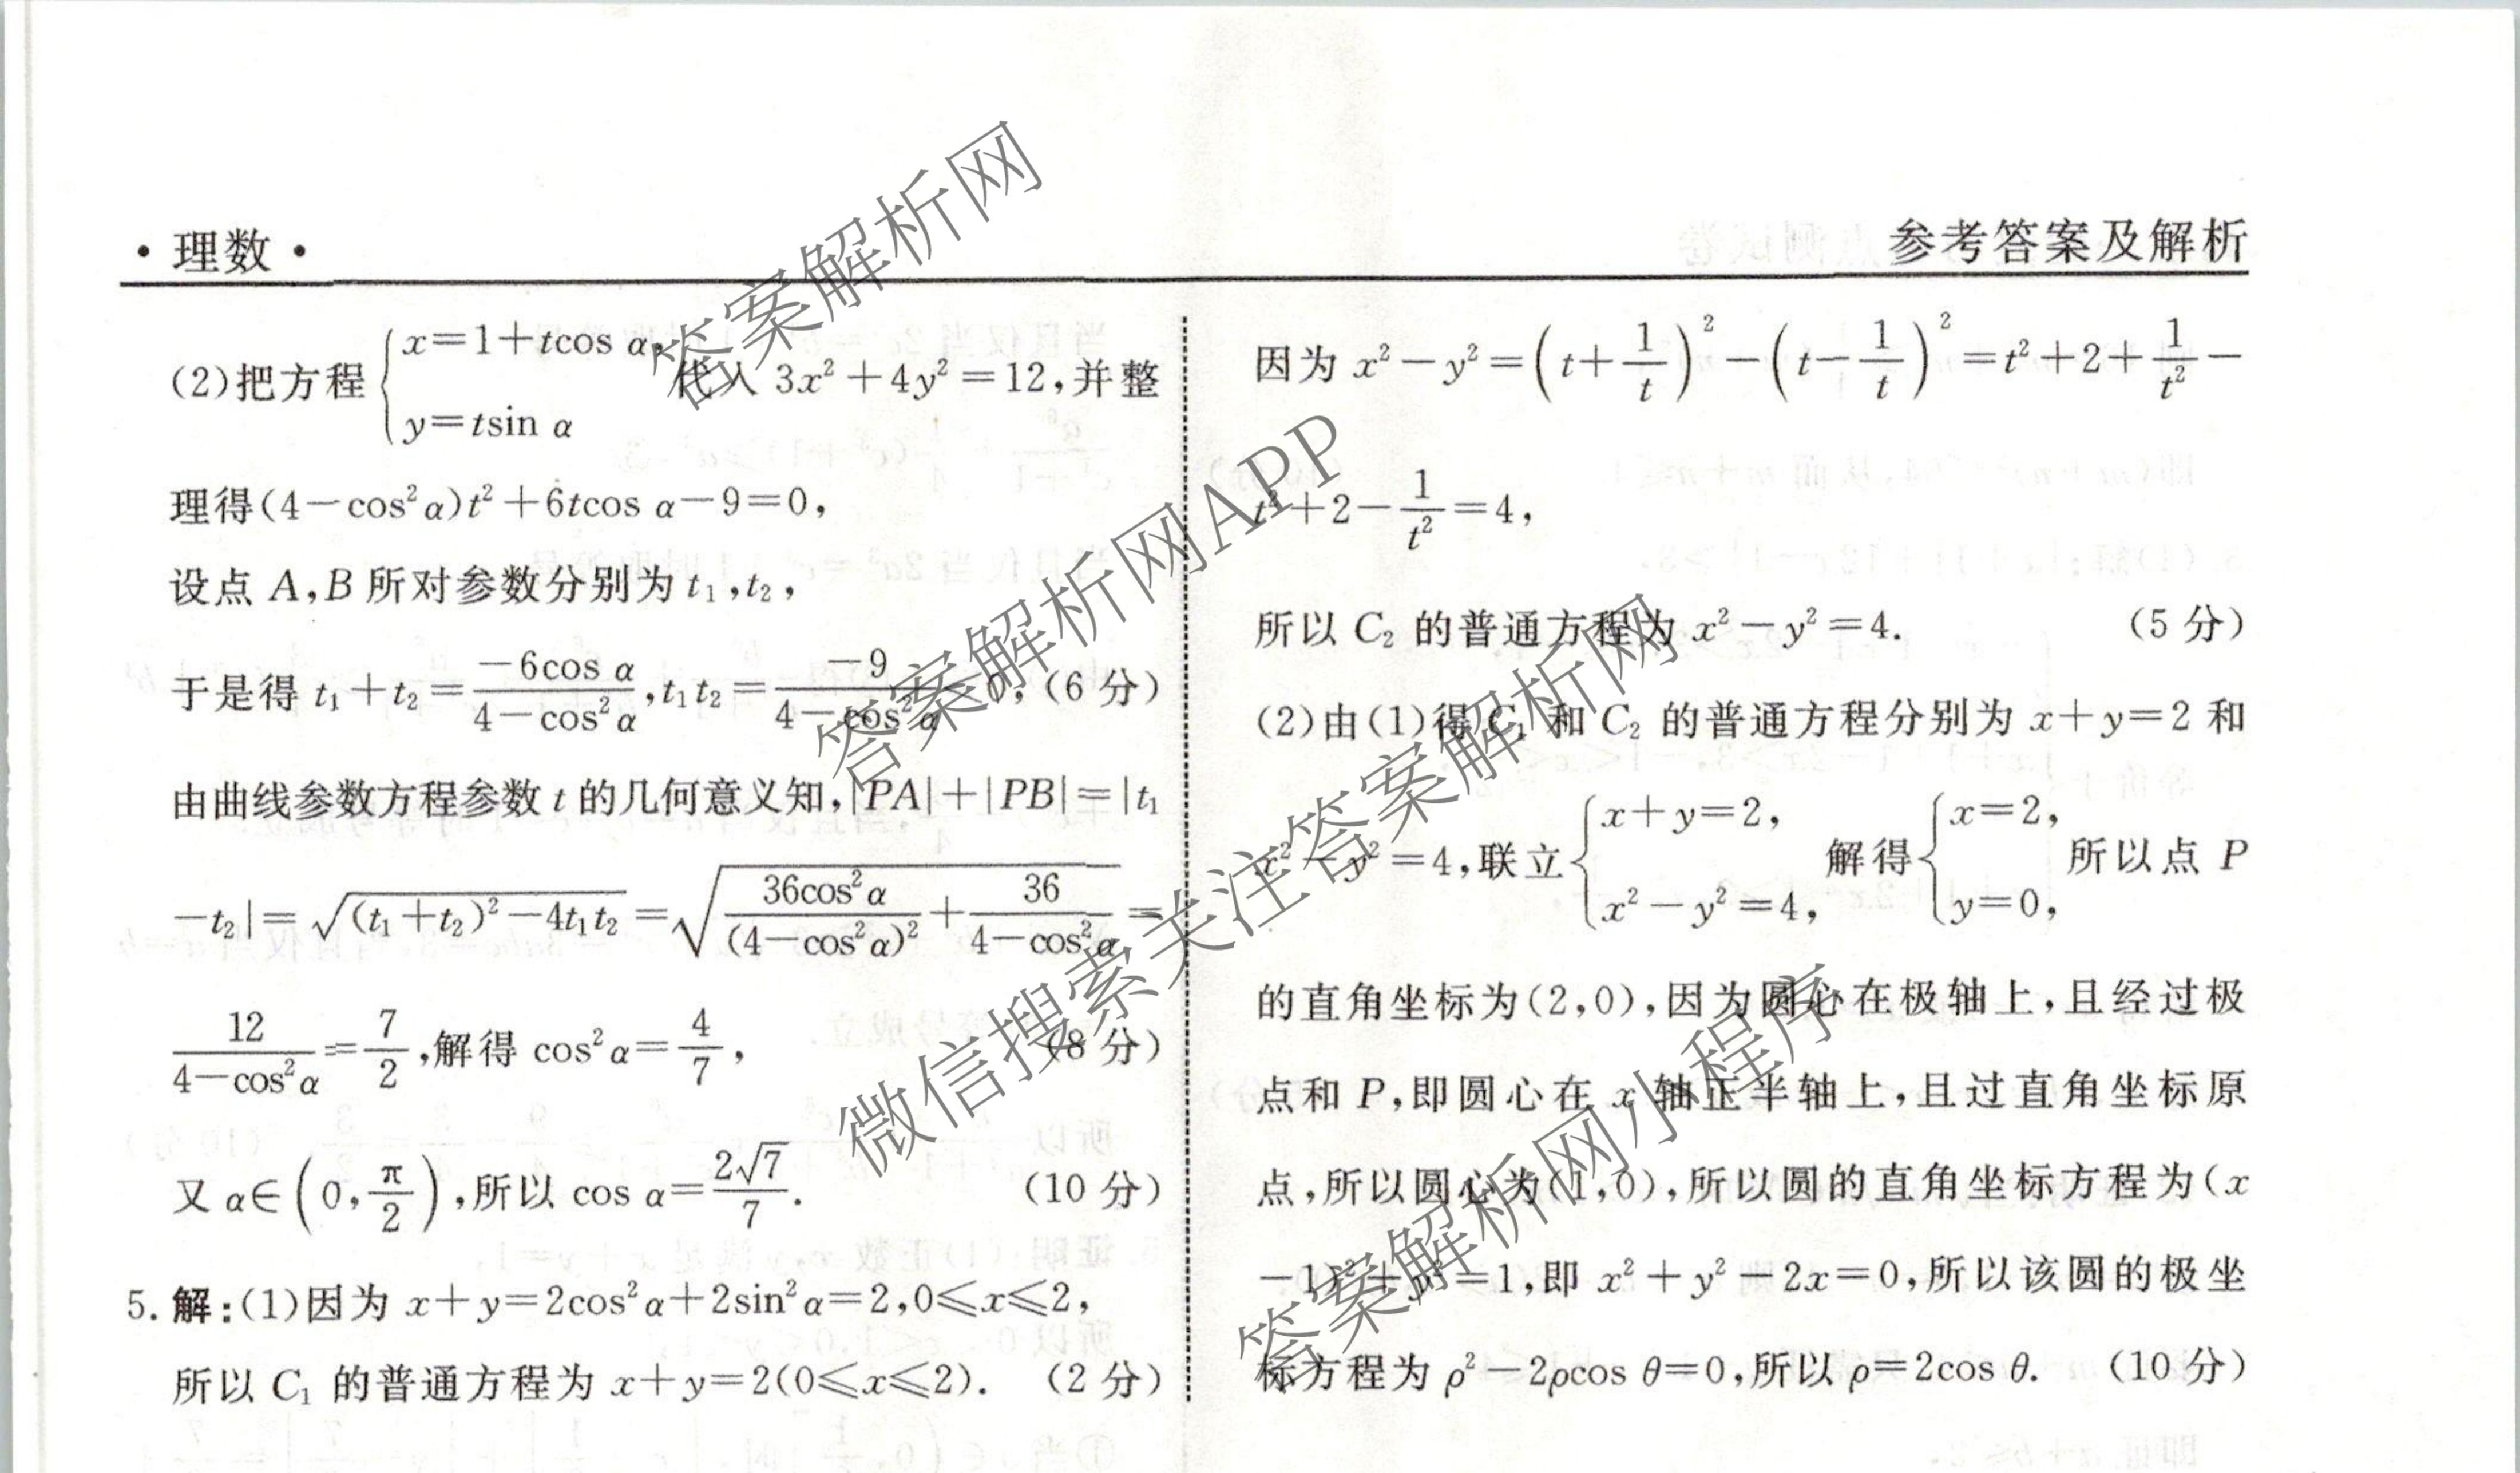 ·理数·
参考答案及解析
(2)把方程{x=1+tcos α, y=tsin α 代入 3x²+4y²=12,并整
理得(4-cos²α)t²+6tcos α-9=0,
设点 A,B 所对参数分别为 t₁,t₂,
于是得 t₁+t₂=-6cos α/(4-cos²α),t₁t₂=-9/(4-cos²α)<0,(6 分)
由曲线参数方程参数 t 的几何意义知,|PA|+|PB|=|t₁
-t₂|=√((t₁+t₂)²-4t₁t₂)=√(36cos²α/(4-cos²α)²+36/(4-cos²α))=
12/(4-cos²α)=7/2,解得 cos²α=4/7, (8 分)
又 α∈(0,π/2),所以 cos α=2√7/7. (10 分)
5. 解:(1)因为 x+y=2cos²α+2sin²α=2,0⩽x⩽2,
所以 C₁ 的普通方程为 x+y=2(0⩽x⩽2). (2 分)
因为 x²-y²=(t+1/t)²-(t-1/t)²=t²+2+1/t²-
t²+2-1/t²=4,
所以 C₂ 的普通方程为 x²-y²=4. (5 分)
(2)由(1)得 C₁ 和 C₂ 的普通方程分别为 x+y=2 和
x²-y²=4,联立{x+y=2, x²-y²=4, 解得{x=2, y=0, 所以点 P
的直角坐标为(2,0),因为圆心在极轴上,且经过极
点和 P,即圆心在 x 轴正半轴上,且过直角坐标原
点,所以圆心为(1,0),所以圆的直角坐标方程为(x
-1)²+y²=1,即 x²+y²-2x=0,所以该圆的极坐
标方程为 ρ²-2ρcos θ=0,所以 ρ=2cos θ. (10 分)
答案解析网
答案解析网APP
微信搜索关注答案解析网
答案解析网小程序